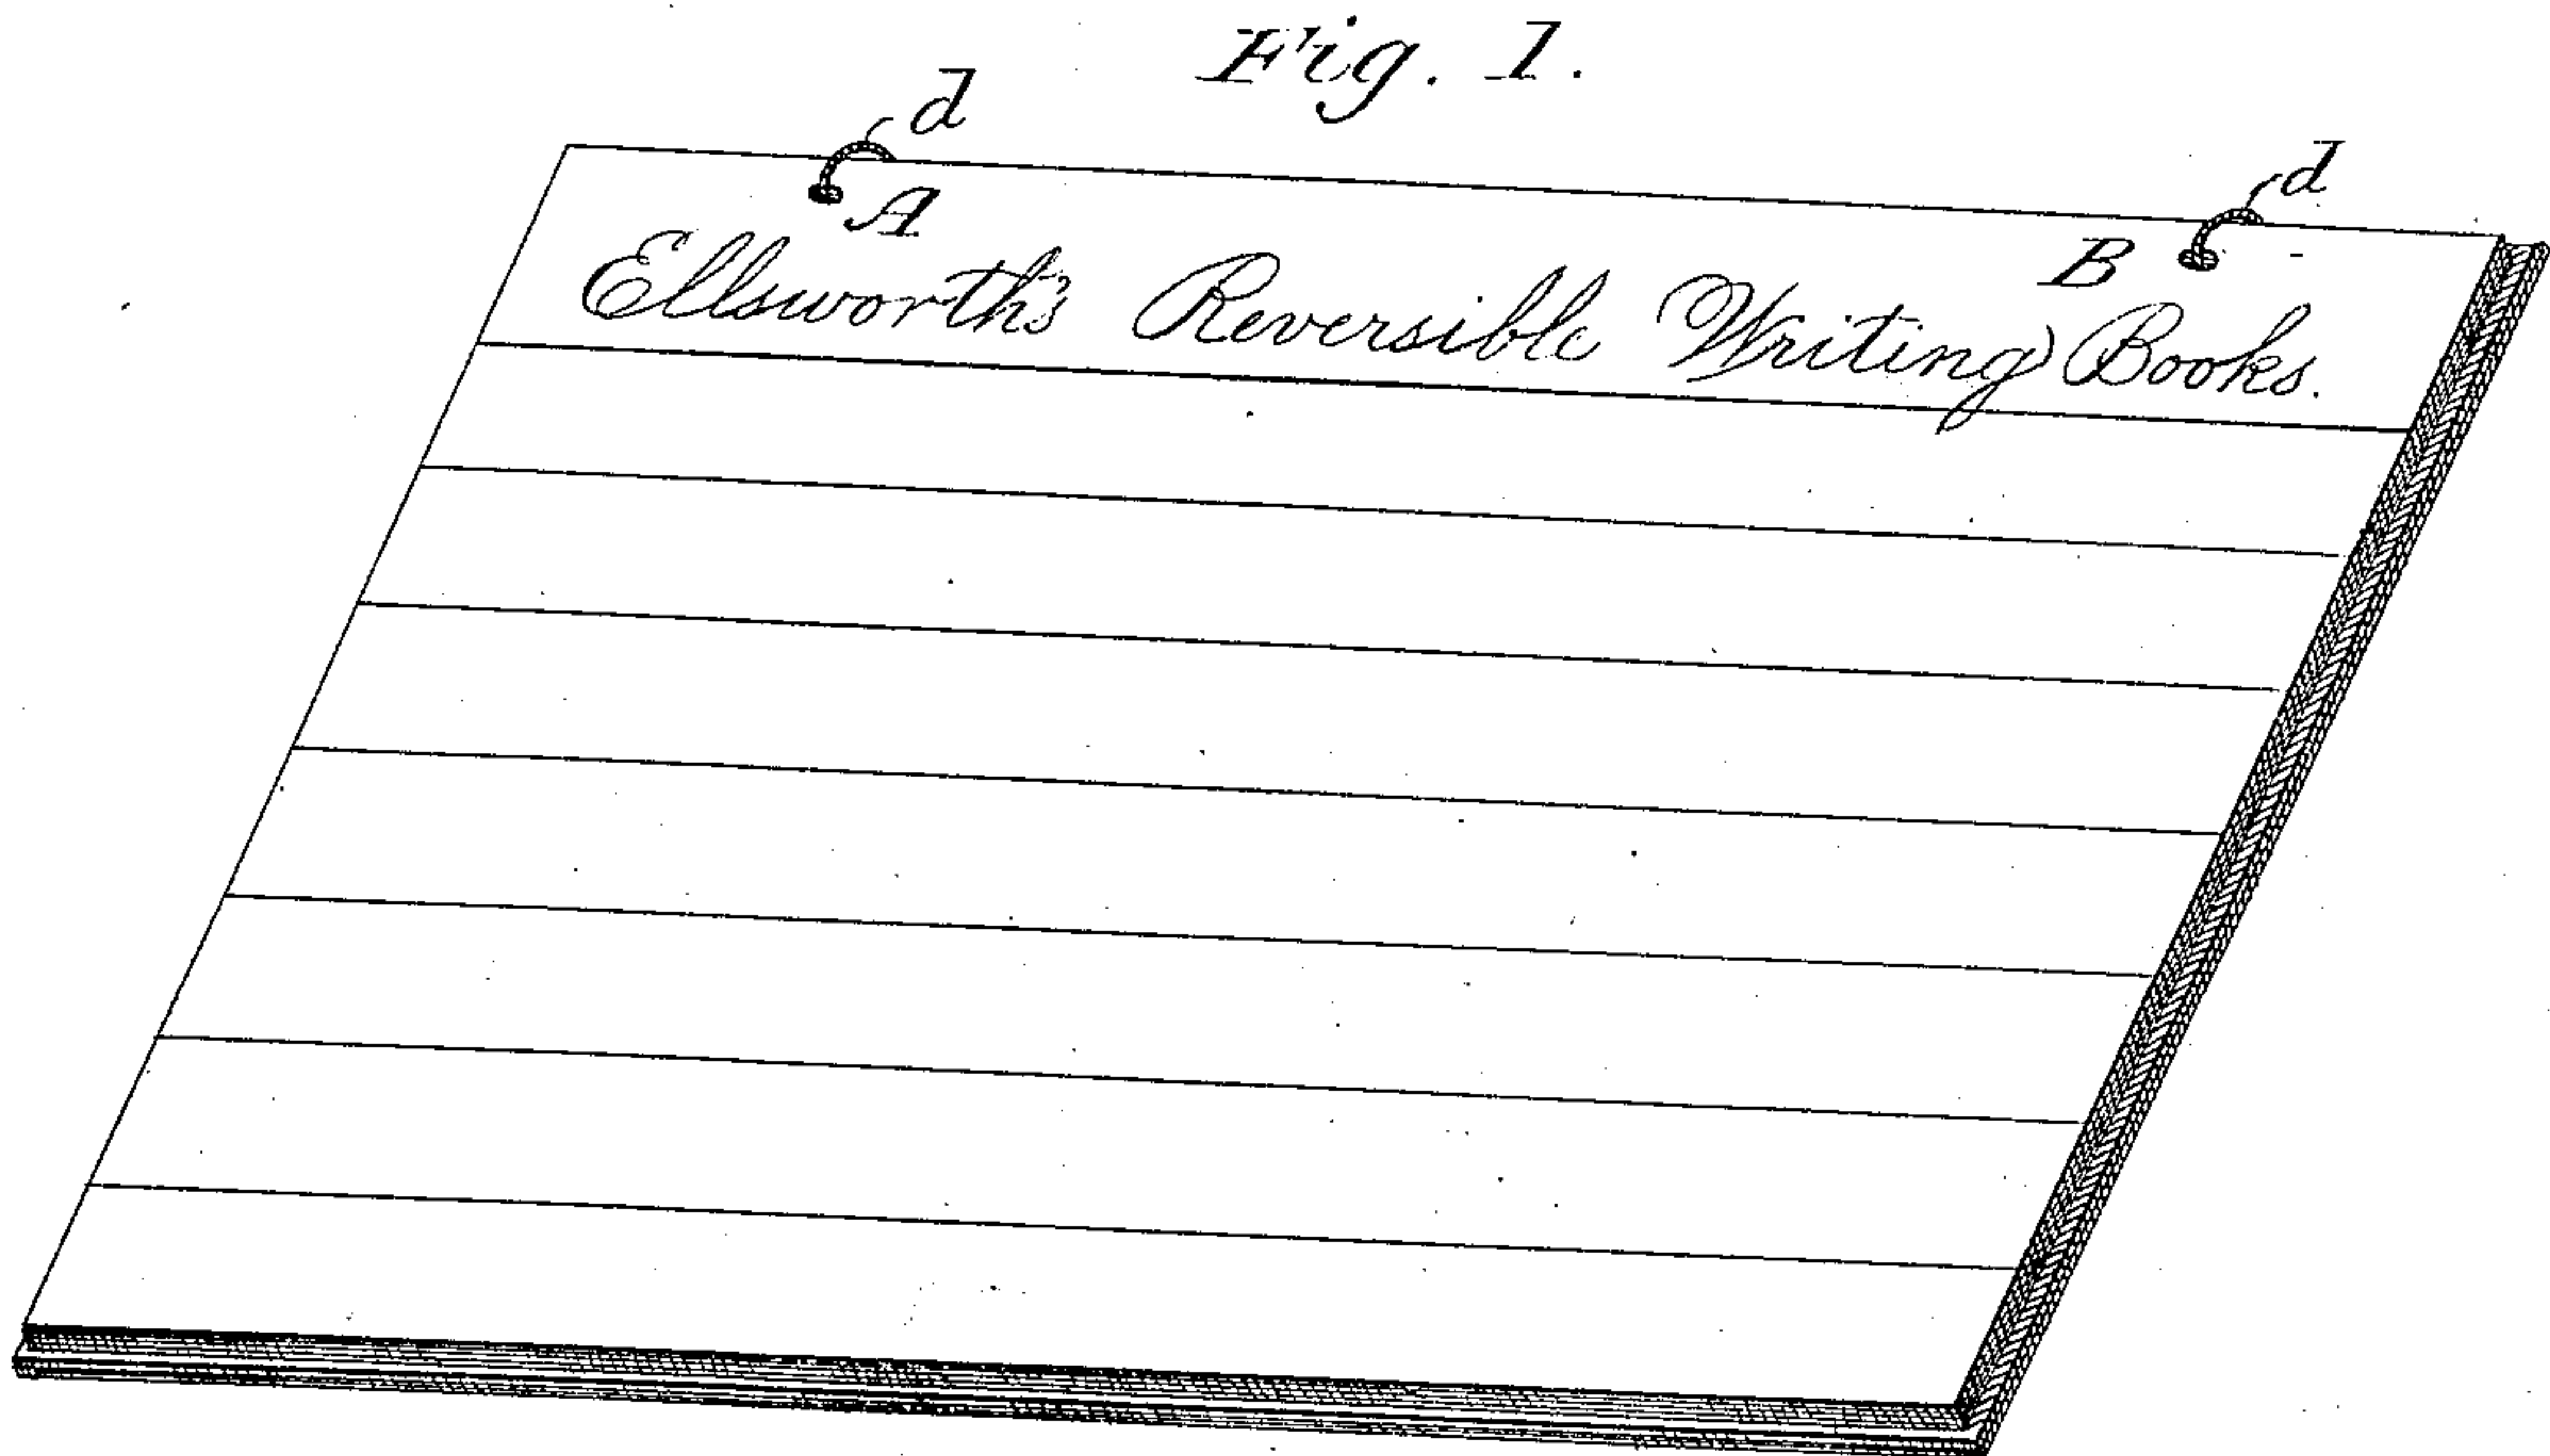 Fig. 1.
d
d
A
B
Ellsworth's Reversible Writing Books.